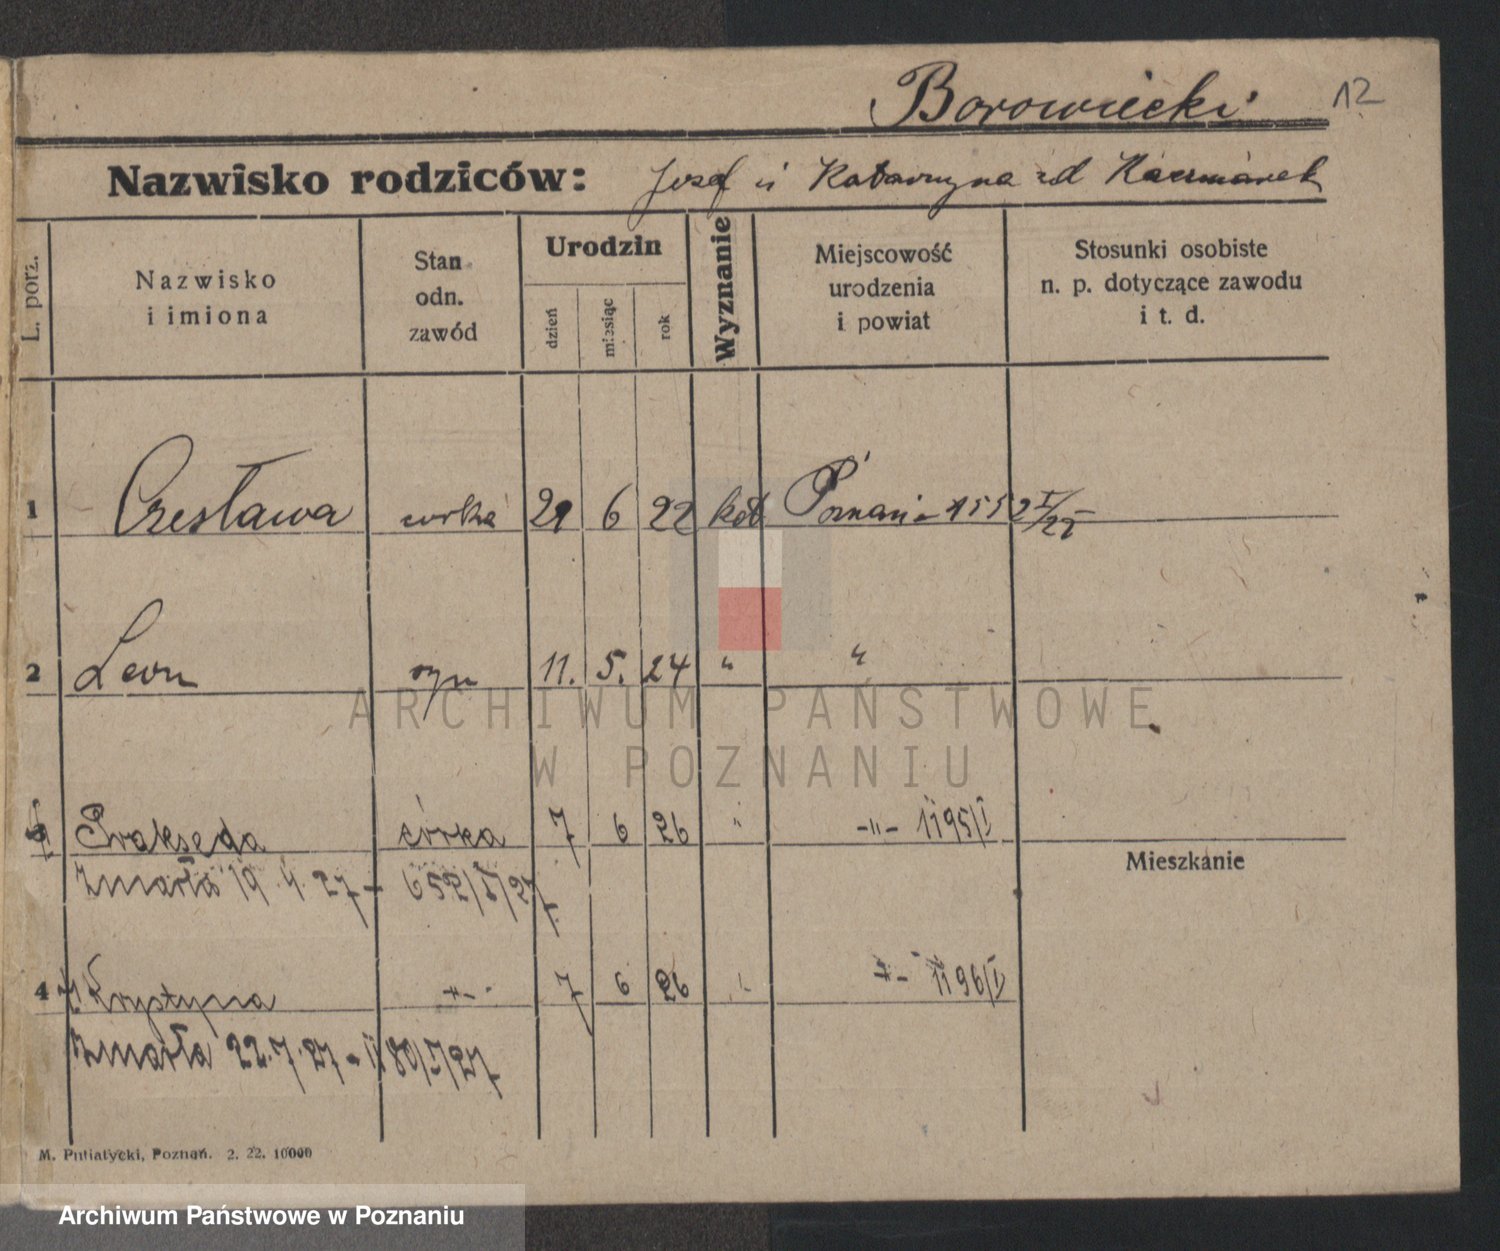 Borowiecki 12
Nazwisko rodziców: Józef i Katarzyna zd Kaczmarek
L. porz.
Nazwisko
i imiona
Stan
odn.
zawód
Urodzin
dzień
miesiąc
rok
Wyznanie
Miejscowość
urodzenia
i powiat
Stosunki osobiste
n. p. dotyczące zawodu
i t. d.
1 Czesława córka 29 6 22 kat Poznań 1552 I/22
2 Leon syn 11. 5. 24 " "
Prakseda córka 7 6 26 " -"- 1195/I
zmarła 19.4.27 - 652/I/27
Mieszkanie
4 Krystyna -"- 7 6 26 " -"- 1196/I
zmarła 22.7.27 - 1180/I/27
M. Putiatycki, Poznań. 2. 22. 10000
ARCHIWUM PAŃSTWOWE
W POZNANIU
Archiwum Państwowe w Poznaniu